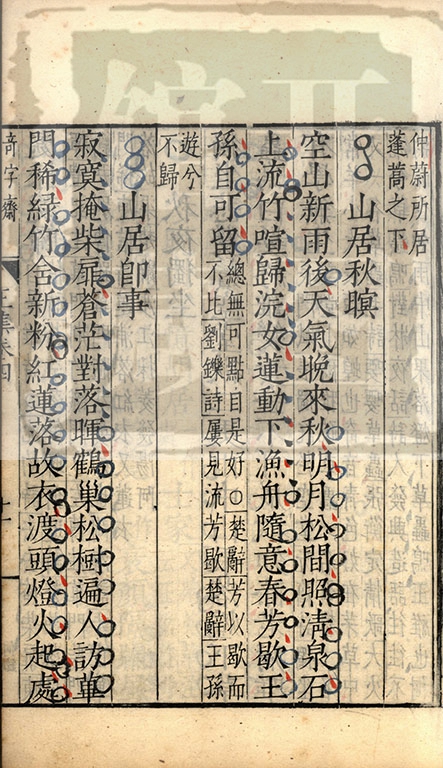 仲蔚所居
蓬蒿之下
山居秋暝
空山新雨後天氣晚來秋明月松間照清泉石
上流竹喧歸浣女蓮動下漁舟隨意春芳歇王
孫自可留
總無可點目是好○楚辭芳以歇而
不比劉鑠詩屢見流芳歇楚辭王孫
遊兮
不歸
山居即事
寂寞掩柴扉蒼茫對落暉鶴巢松樹遍人訪蓽
門稀綠竹含新粉紅蓮落故衣渡頭燈火起處
奇字齋
卷四